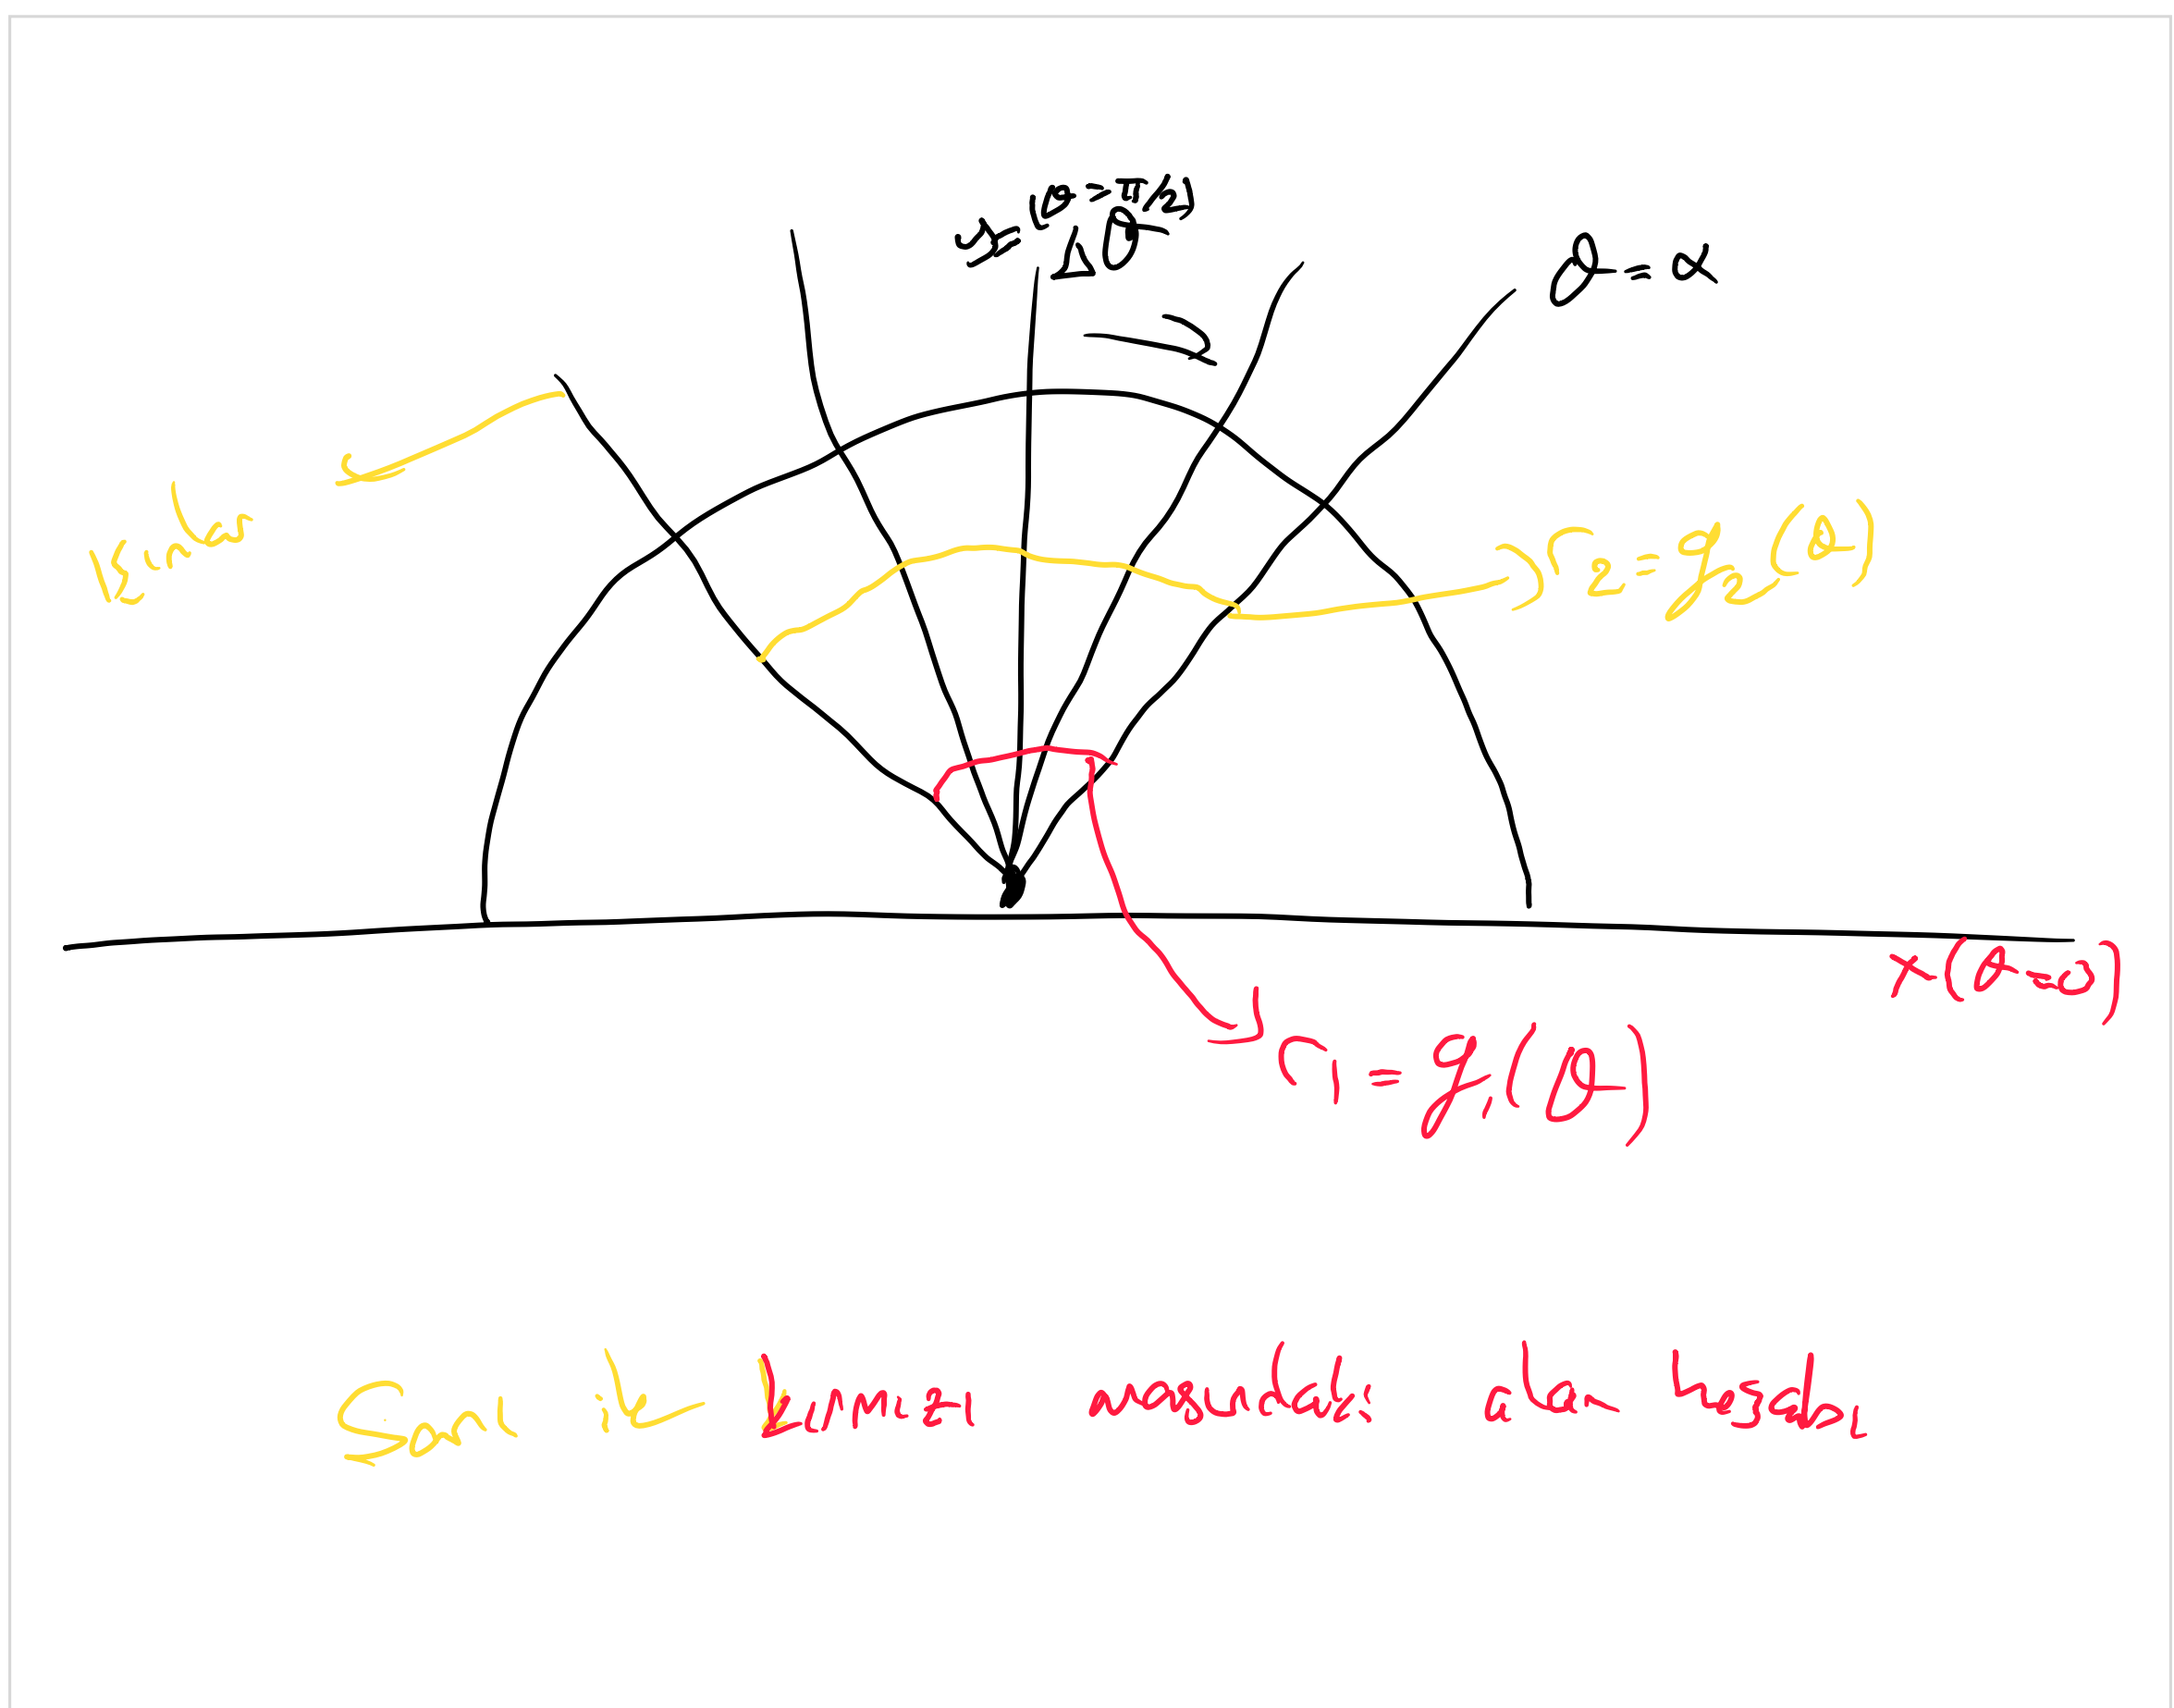 (θ=π/2)
Δθ
θ=α
r₂=g₂(θ)
x-(θ=0)
r₁=g₁(θ)
Sarı ile kırmızı arasındaki alan hesabı